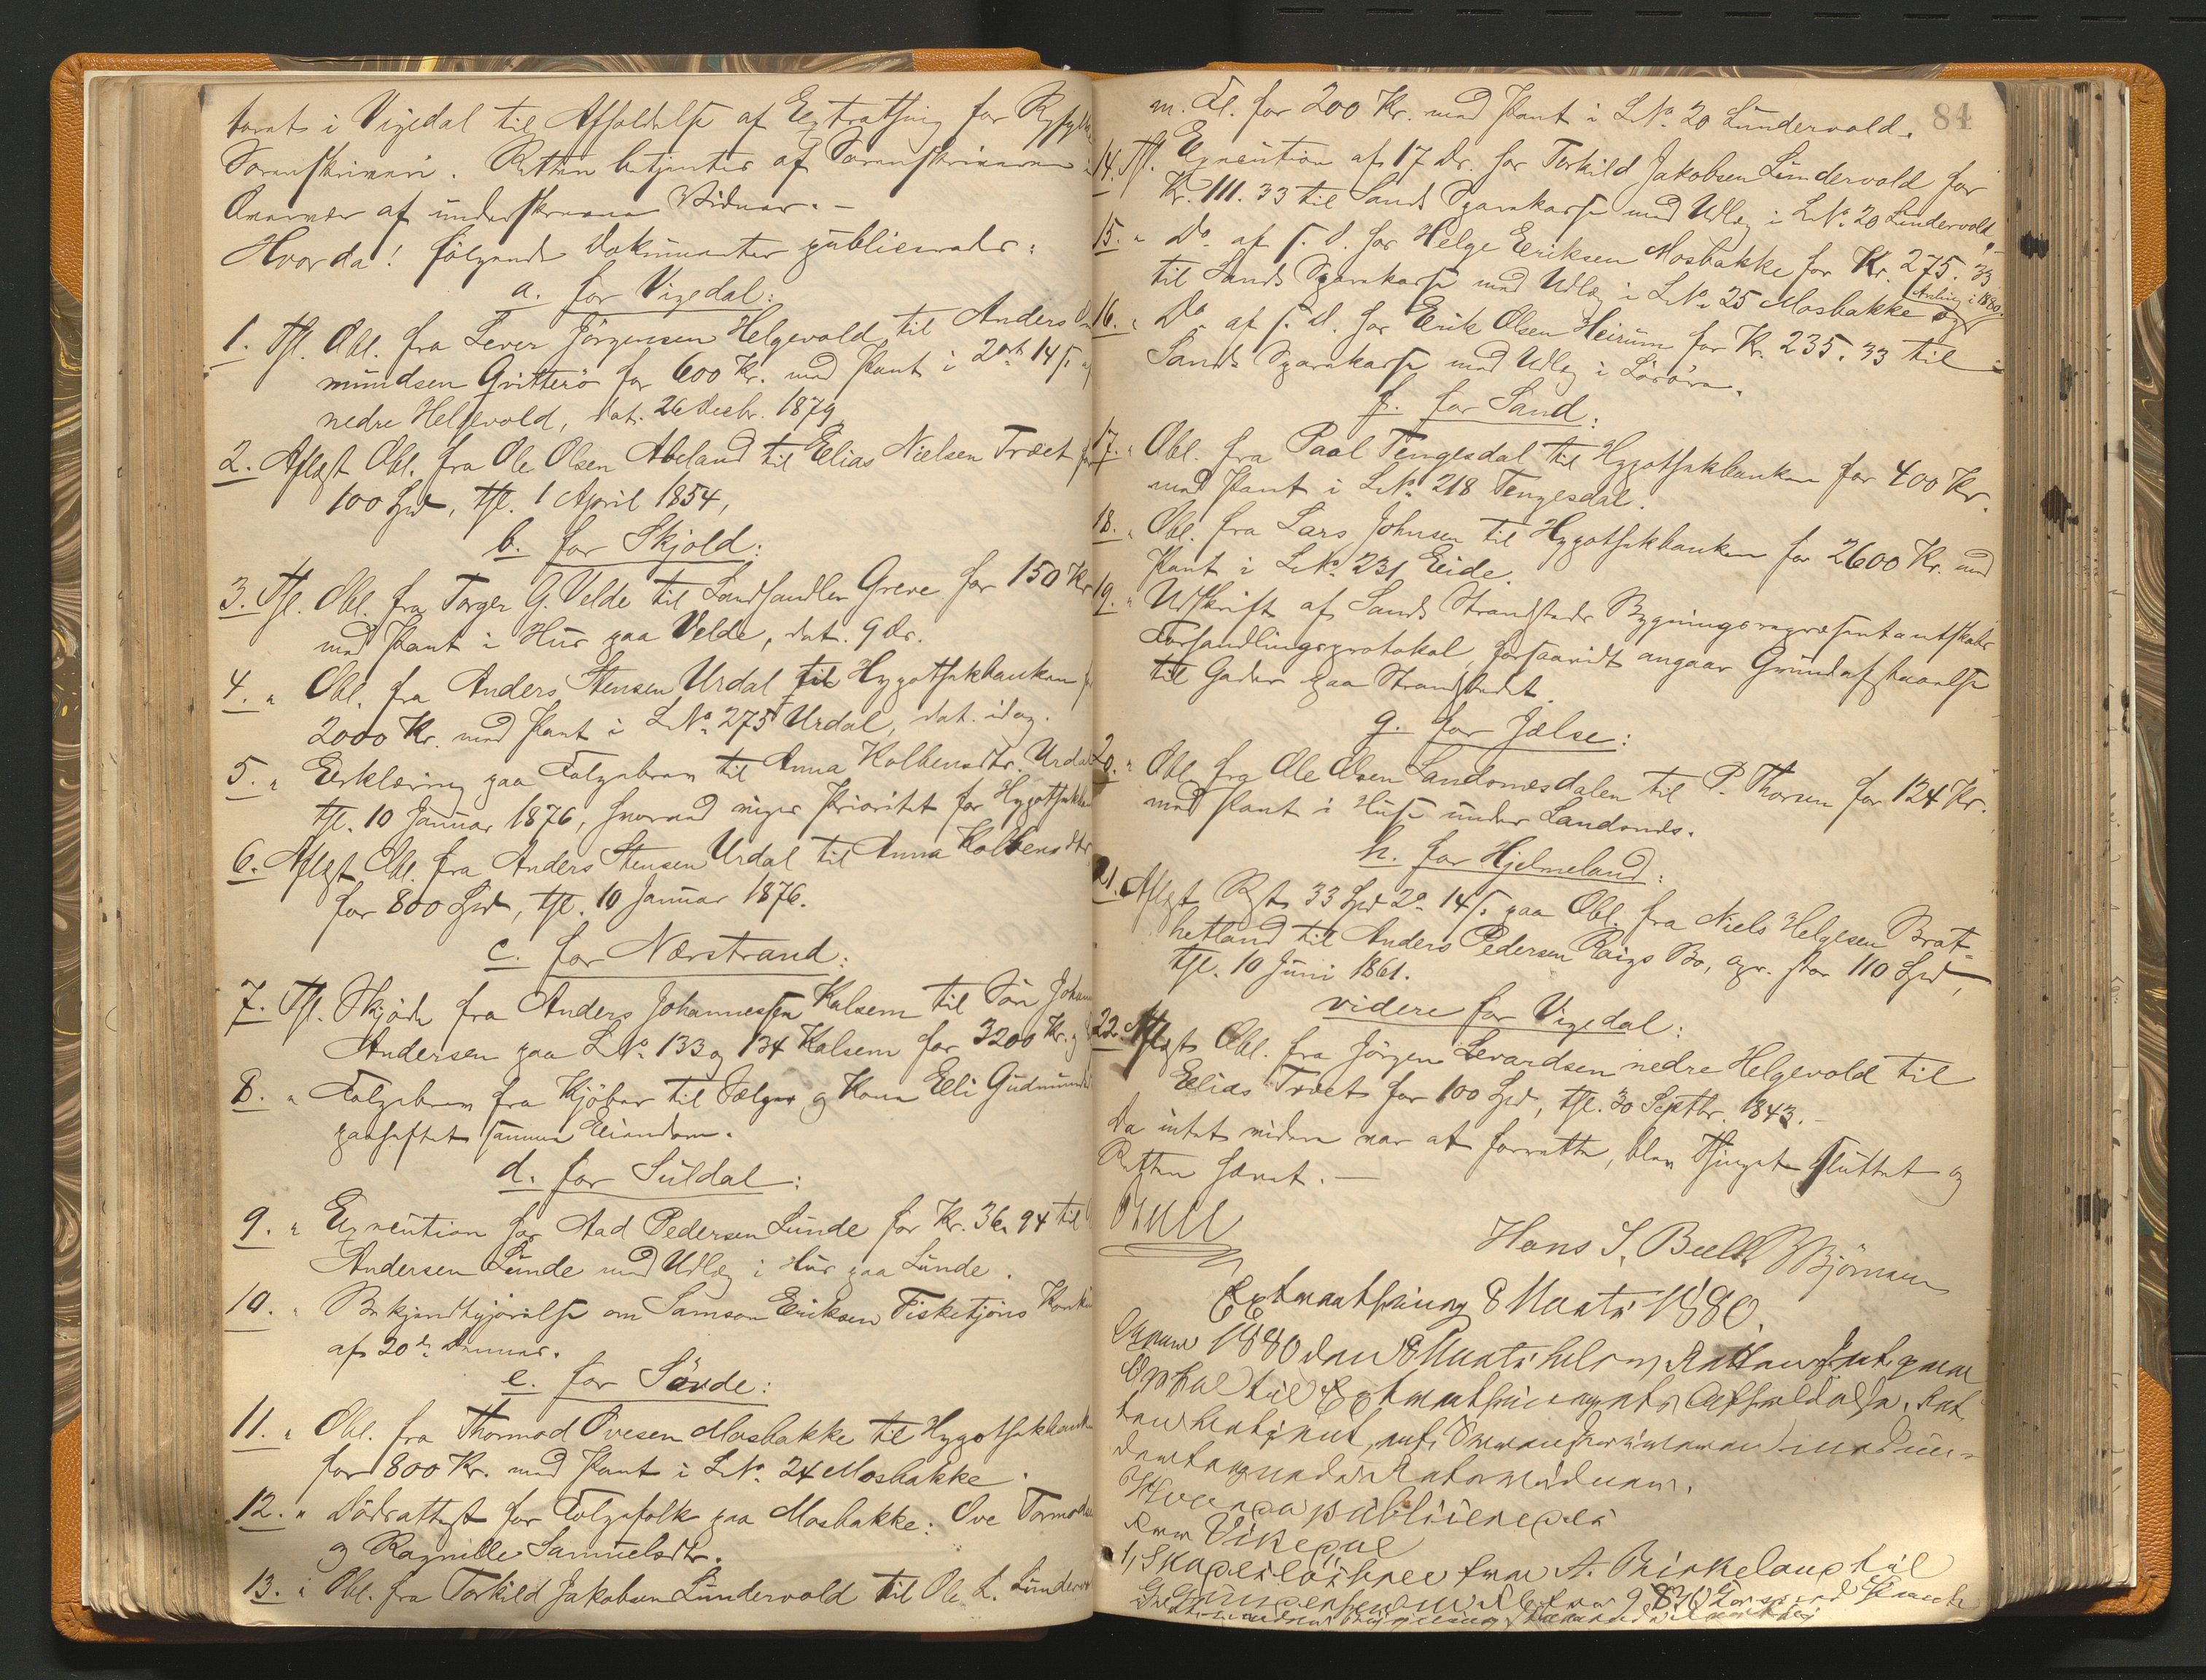 torat i Vigedal til Afholdelse af Extrathing for Ryfylke
Sorenskriveri. Retten betjentes af Sorenskriveren i
Overvær af underskrevne Vidner. -
Hvorda! følgende Dokumenter publiceredes:
a. for Vigedal:
1. Thl. Obl. fra Lever Jörgensen Helgevold til Anders
mundsen Qvitterö for 600 Kr. med Pant i 2 14 s. af
nedre Helgevold, dat. 26 Decbr. 1879
2. Aflyst Obl. fra Ole Olsen Abeland til Elias Nielsen Træet for
100 Spd, thl. 1 April 1854,
b. for Skjold:
3. Thl. Obl. fra Torger G. Velde til Landhandler Greve for 150 Kr
med Pant i Hus paa Velde, dat. 9 ds.
4. " Obl. fra Anders Stensen Urdal til Hypothekbanken for
2000 Kr. med Pant i L.No. 275 Urdal, dat. idag.
5. " Erklæring paa Folgebrev til Anna Kolbensdtr. Urdal
thl. 10 Januar 1876, hvorved viges Prioritet for Hypothekba
6. Aflyst Obl. fra Anders Stensen Urdal til Anna Kolbensdtr.
for 800 Spd, thl. 10 Januar 1876.
c. for Nærstrand:
7. Thl. Skjöde fra Anders Johannessen Kalsem til Sön Johan
Andersen paa L.No. 133 og 134 Kalsem for 3200 Kr. og
8. " Folgebrev fra Kjöber til Sælger og Kone Elli Gudmunds
paaheftet samme Eiendom.
d. for Suldal:
9. " Execution hos Aad Pedersen Lunde for Kr. 36. 94 til
Andersen Lunde med Udlæg i Hus paa Lunde.
10. " Bekjendtgjörelse om Samson Eriksen Fisketjöns Konku
af 20de dennes.
e. for Sövde:
11. " Obl. fra Thormod Ovesen Mosbakke til Hypothekbank
for 800 Kr. med Pant i L.No. 24 Mosbakke.
12. " Dödsattest for Folgefolk paa Mosbakke: Ove Tormods
og Ragnille Samuelsdtr.
13. " Obl. fra Torkild Jakobsen Lundervold til Ole L. Lunderv
84
m. Fl. for 200 Kr. med Pant i L.No. 20 Lundervold.
14. Thl. Execution af 17 ds. hos Torkild Jakobsen Lundervold for
Kr. 111. 33 til Sands Sparekasse med Udlæg i L.No. 20 Lundervold.
15. " Do. af s. D. hos Helge Eriksen Mosbakke for Kr. 275. 33
til Sands Sparekasse med Udlæg i L.No. 25 Mosbakke og
i 1880.
16. " Do. af s. D. hos Erik Olsen Heirum for Kr. 235. 33 til
Sands Sparekasse med Udlæg i Lösöre.
f. for Sand:
17. " Obl. fra Paal Tengesdal til Hypothekbanken for 400 Kr.
med Pant i L.No. 218 Tengesdal.
18. " Obl. fra Lars Johnsen til Hypothekbanken for 2600 Kr. med
Pant i L.No. 231 Eide.
19. " Udskrift af Sands Strandsteds Bygningsrepræsentantskabs
Forhandlingsprotokol, forsaavidt angaar Grundafstaaelse
til Gader paa Strandstedet.
g. for Jælse:
20. " Obl. fra Ole Olsen Landsnesdalen til P. Thorsen for 124 Kr.
med Pant i Huse under Landsnes.
h. for Hjelmeland:
21. Aflyst Rest 33 Spd 2o. 14 s. paa Obl. fra Niels Helgesen Brat-
hetland til Anders Pedersen Raigs Bo, opr. stor 110 Spd,
thl. 10 Juni 1861.
videre for Vigedal:
22. Aflyst Obl. fra Jörgen Levardsen nedre Helgevold til
Elias Træet for 100 Spd, thl. 30 Septbr. 1843. -
Da intet videre var at forrette, blev Thinget sluttet og
Retten hævet. -
Bull
Hans S. Bull. Björnsen
Extrathing 8 Marts 1880.
1880 den 8 Marts Retten
til Extrathingets Afholdelse. Ret
ten betjent af Sorenskriveren med un-
dertegnede Retsvidner.
Hvorda publiceredes
for Vikedal
1, Skadeslösbrev fra A. Birkeland til